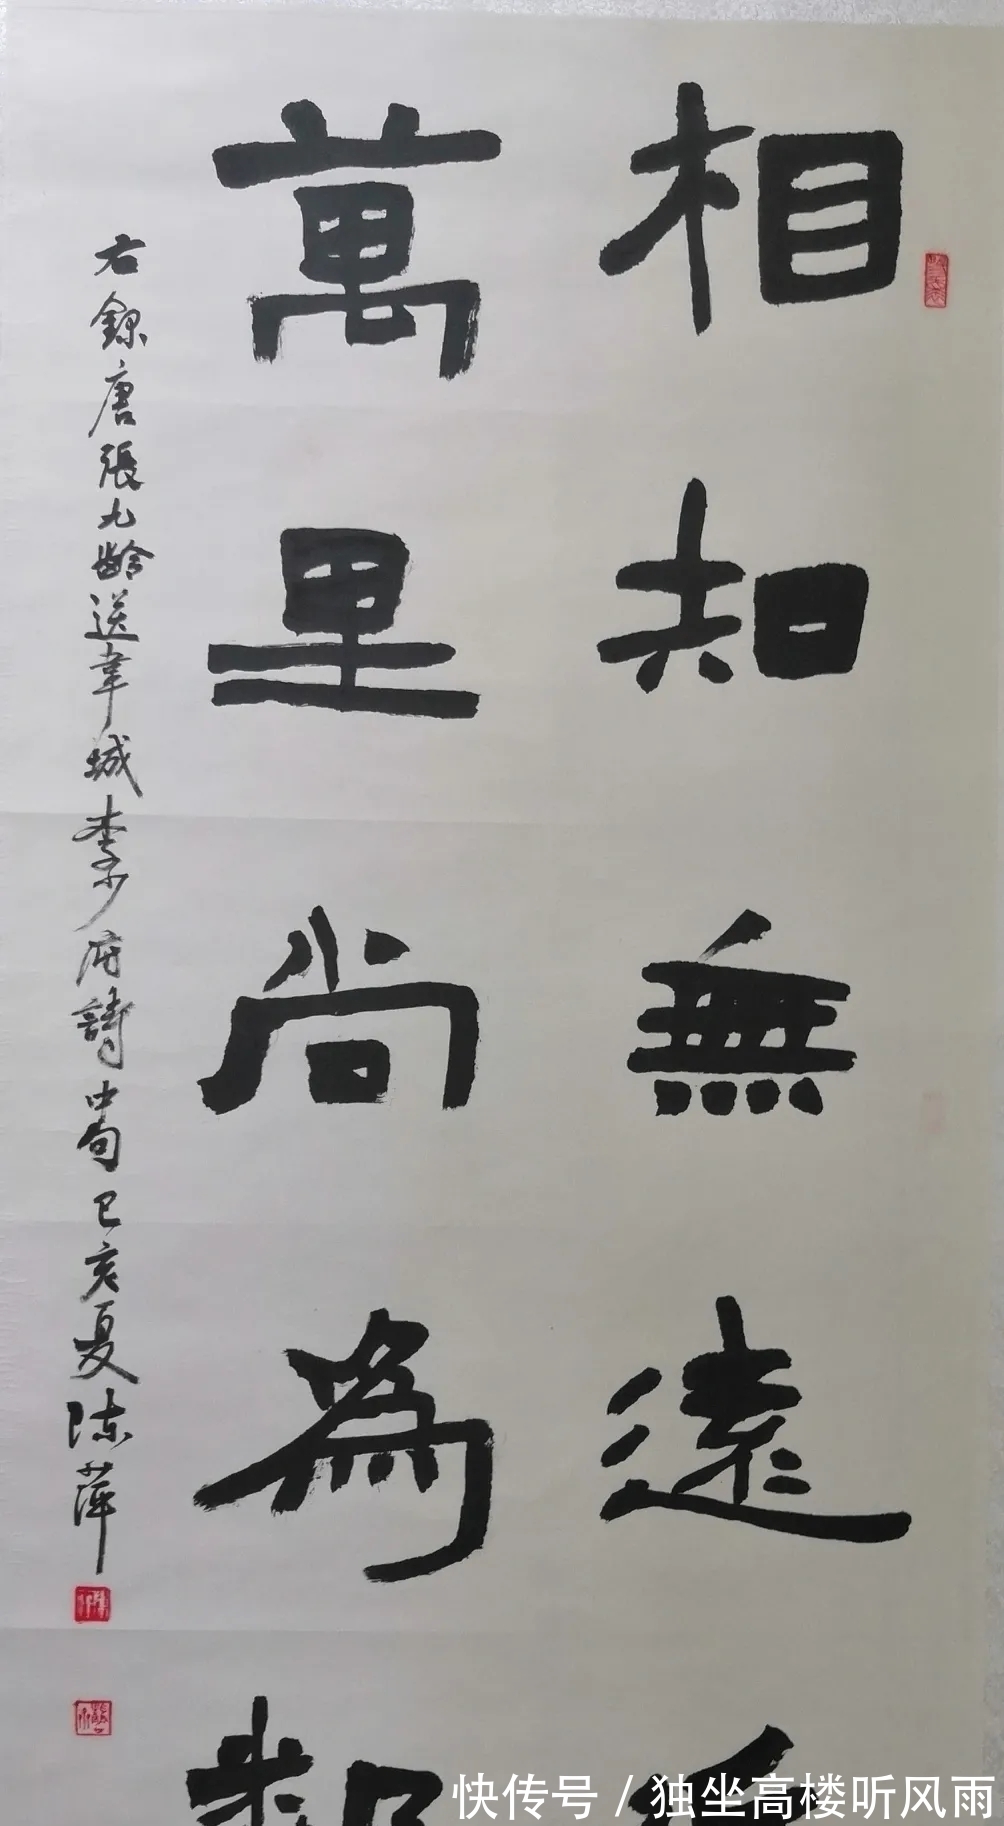 相知無遠
萬里尚為
右錄唐張九齡送韋城李少府詩中句己亥夏陈萍
快传号 / 独坐高楼听风雨